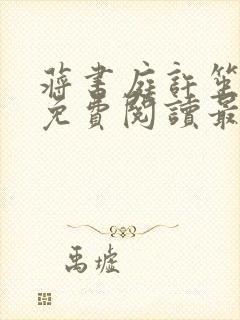 蔣書庭許笙
免費閱讀最
禹墟